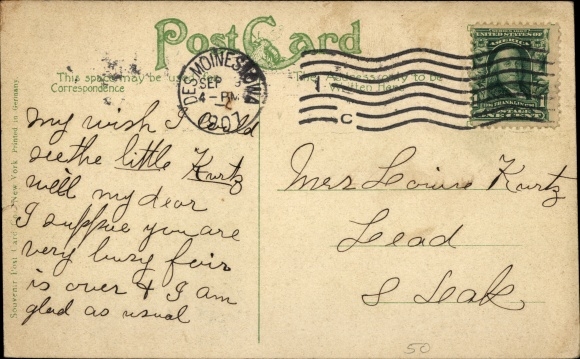 Post Card
This space may be used for
Correspondence
The Address only to be
Written Here
DES MOINES, IOWA
SEP
4-PM
1907
1
C
UNITED STATES OF
AMERICA
FRANKLIN
POSTAGE
ONE CENT
my wish I could
see the little Kurtz
well my dear
I suppose you are
very busy fair
is over & I am
glad as usual
Mrs Louise Kurtz
Lead
S Dak
50
Souvenir Post Card New York Printed in Germany.